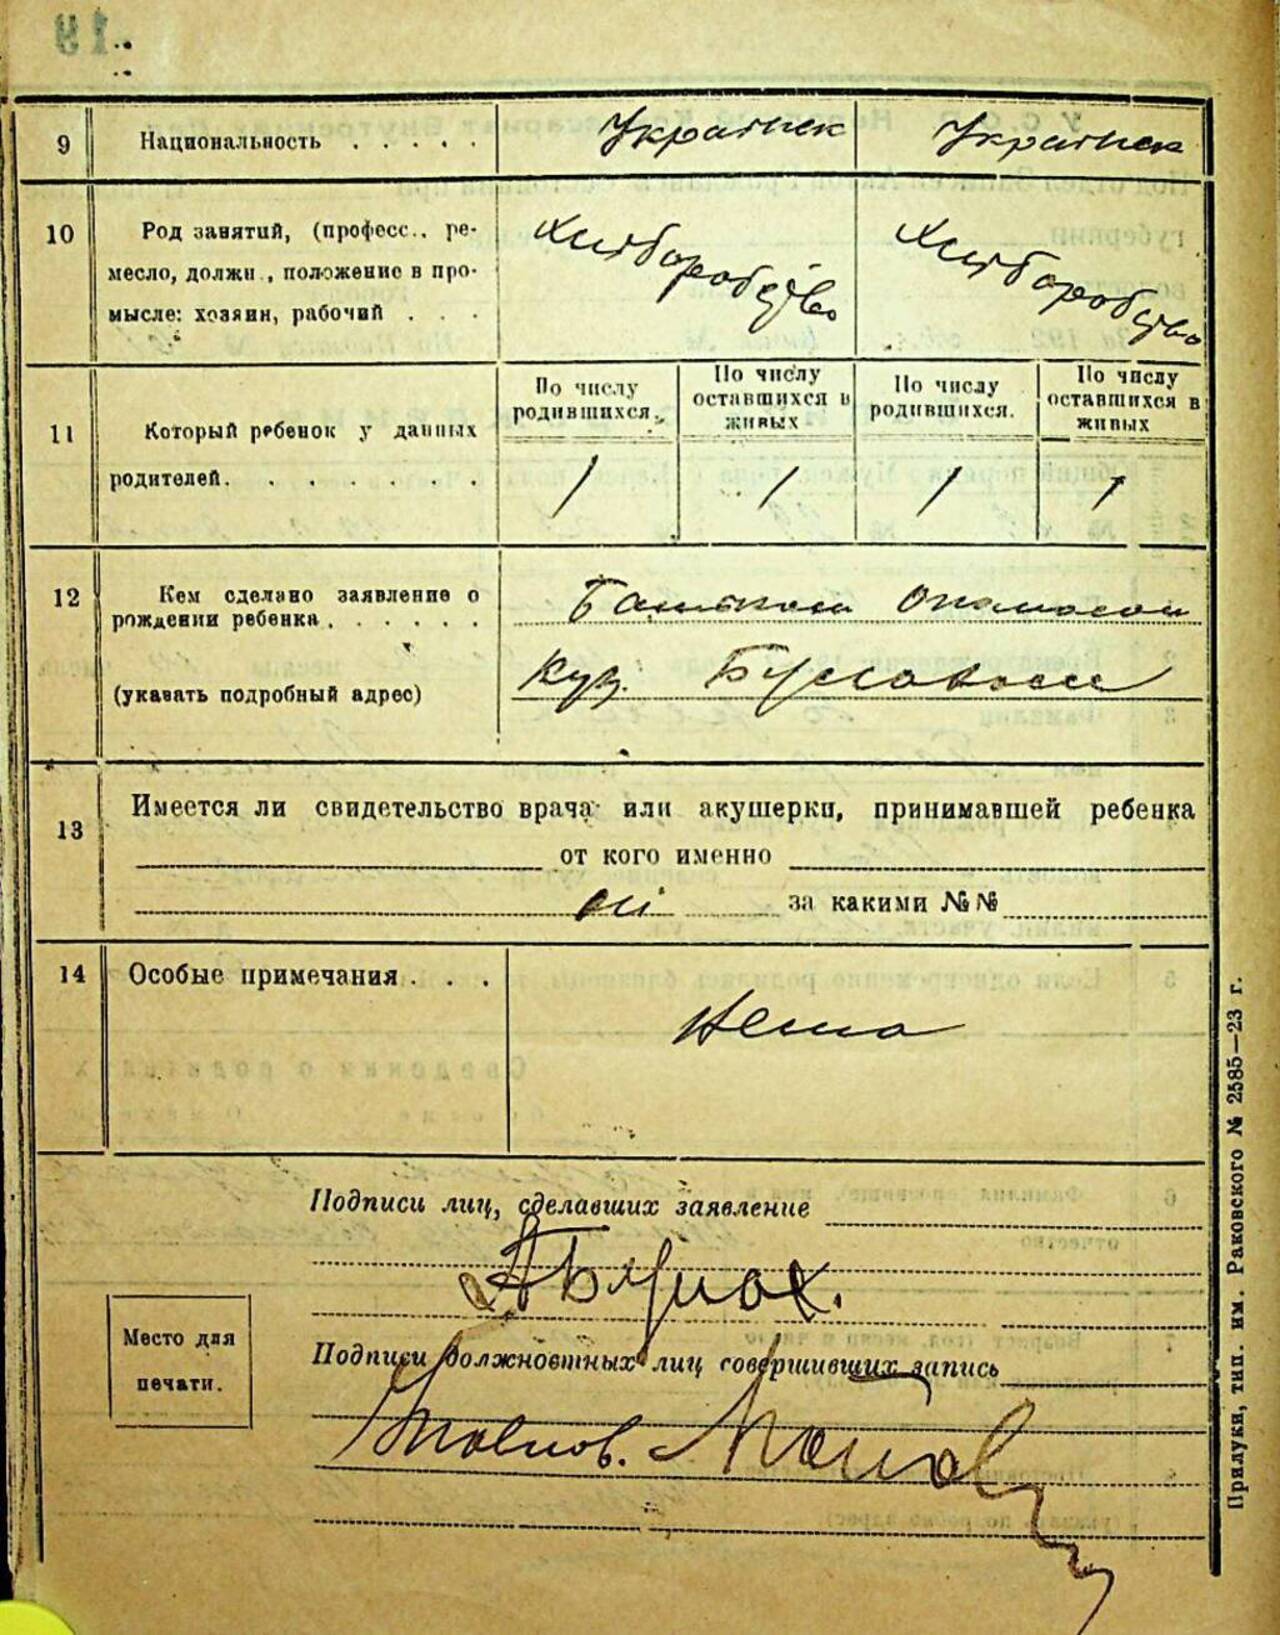 19
9 Национальность . . . . . Українск Українск
10 Род занятий, (професс.. ре-
месло, должн , положение в про-
мысле: хозяин, рабочий . . .
Хліборобство Хліборобство
11 Который ребенок у данных
родителей. . . . . . . .
По числу
родившихся.
По числу
оставшихся в
живых
По числу
родившихся.
По числу
оставшихся в
живых
1 1 1 1
12 Кем сделано заявление о
рождении ребенка. . . . . .
(указать подробный адрес)
Батьком Опанасом
Куз.
13 Имеется ли свидетельство врача или акушерки, принимавшей ребенка
от кого именно
ні за какими №№
14 Особые примечания . . .
Нема
Подписи лиц, сделавших заявление
Место для
печати.
Подписи должностных лиц совершивших запись
Прилуки, тип. им. Раковского № 2585—23 г.